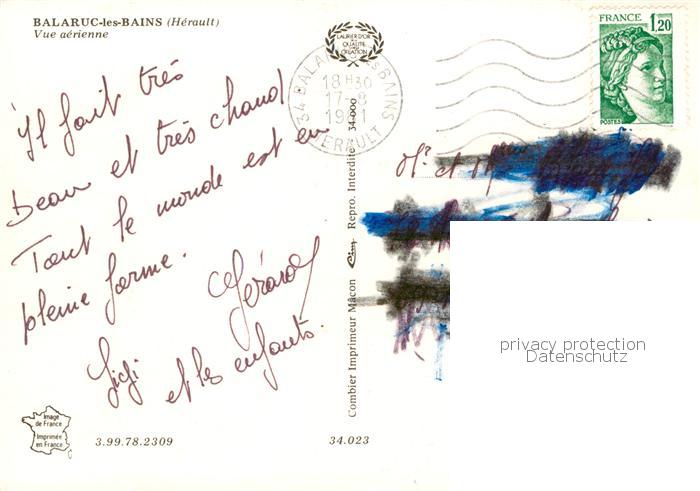 BALARUC-les-BAINS (Hérault)
Vue aérienne
Il fait très
beau et très chaud
Tout le monde est en
pleine forme.
Gérard
Gigi
et les enfants.
Image
de France
Imprimée
en France
3.99.78.2309
34.023
Combier Imprimeur Mâcon
Repro. Interdite
34-000
LAURIER D'OR
DE LA
QUALITÉ
CRÉATION
34 BALARUC LES BAINS
18 H30
17-8
1981
HERAULT
FRANCE
1,20
POSTES
Mr et Mme
privacy protection
Datenschutz